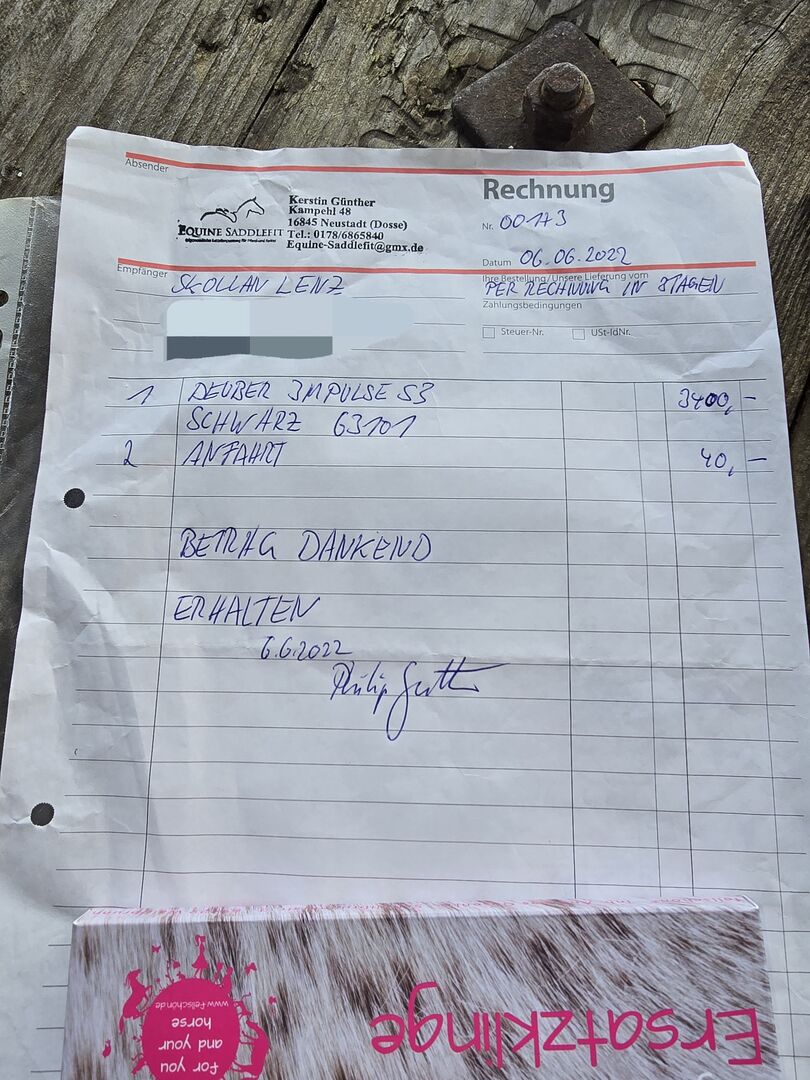 Absender
Rechnung
EQUINE SADDLEFIT
Kerstin Günther
Kampehl 48
16845 Neustadt (Dosse)
Tel.: 0178/6865840
Equine-Saddlefit@gmx.de
Nr. 00173
Datum 06.06.2022
Empfänger
SKOLLAN LENZ
Ihre Bestellung/Unsere Lieferung vom
PER RECHNUNG IN 8TAGEN
Zahlungsbedingungen
Steuer-Nr. USt-IdNr.
1 DEUBER IMPULSE S3 3400,-
SCHWARZ 63101
2 ANFAHRT 40,-
BETRAG DANKEND
ERHALTEN
6.6.2022
Ersatzklinge
for you
and your
horse
www.Fellschön.de